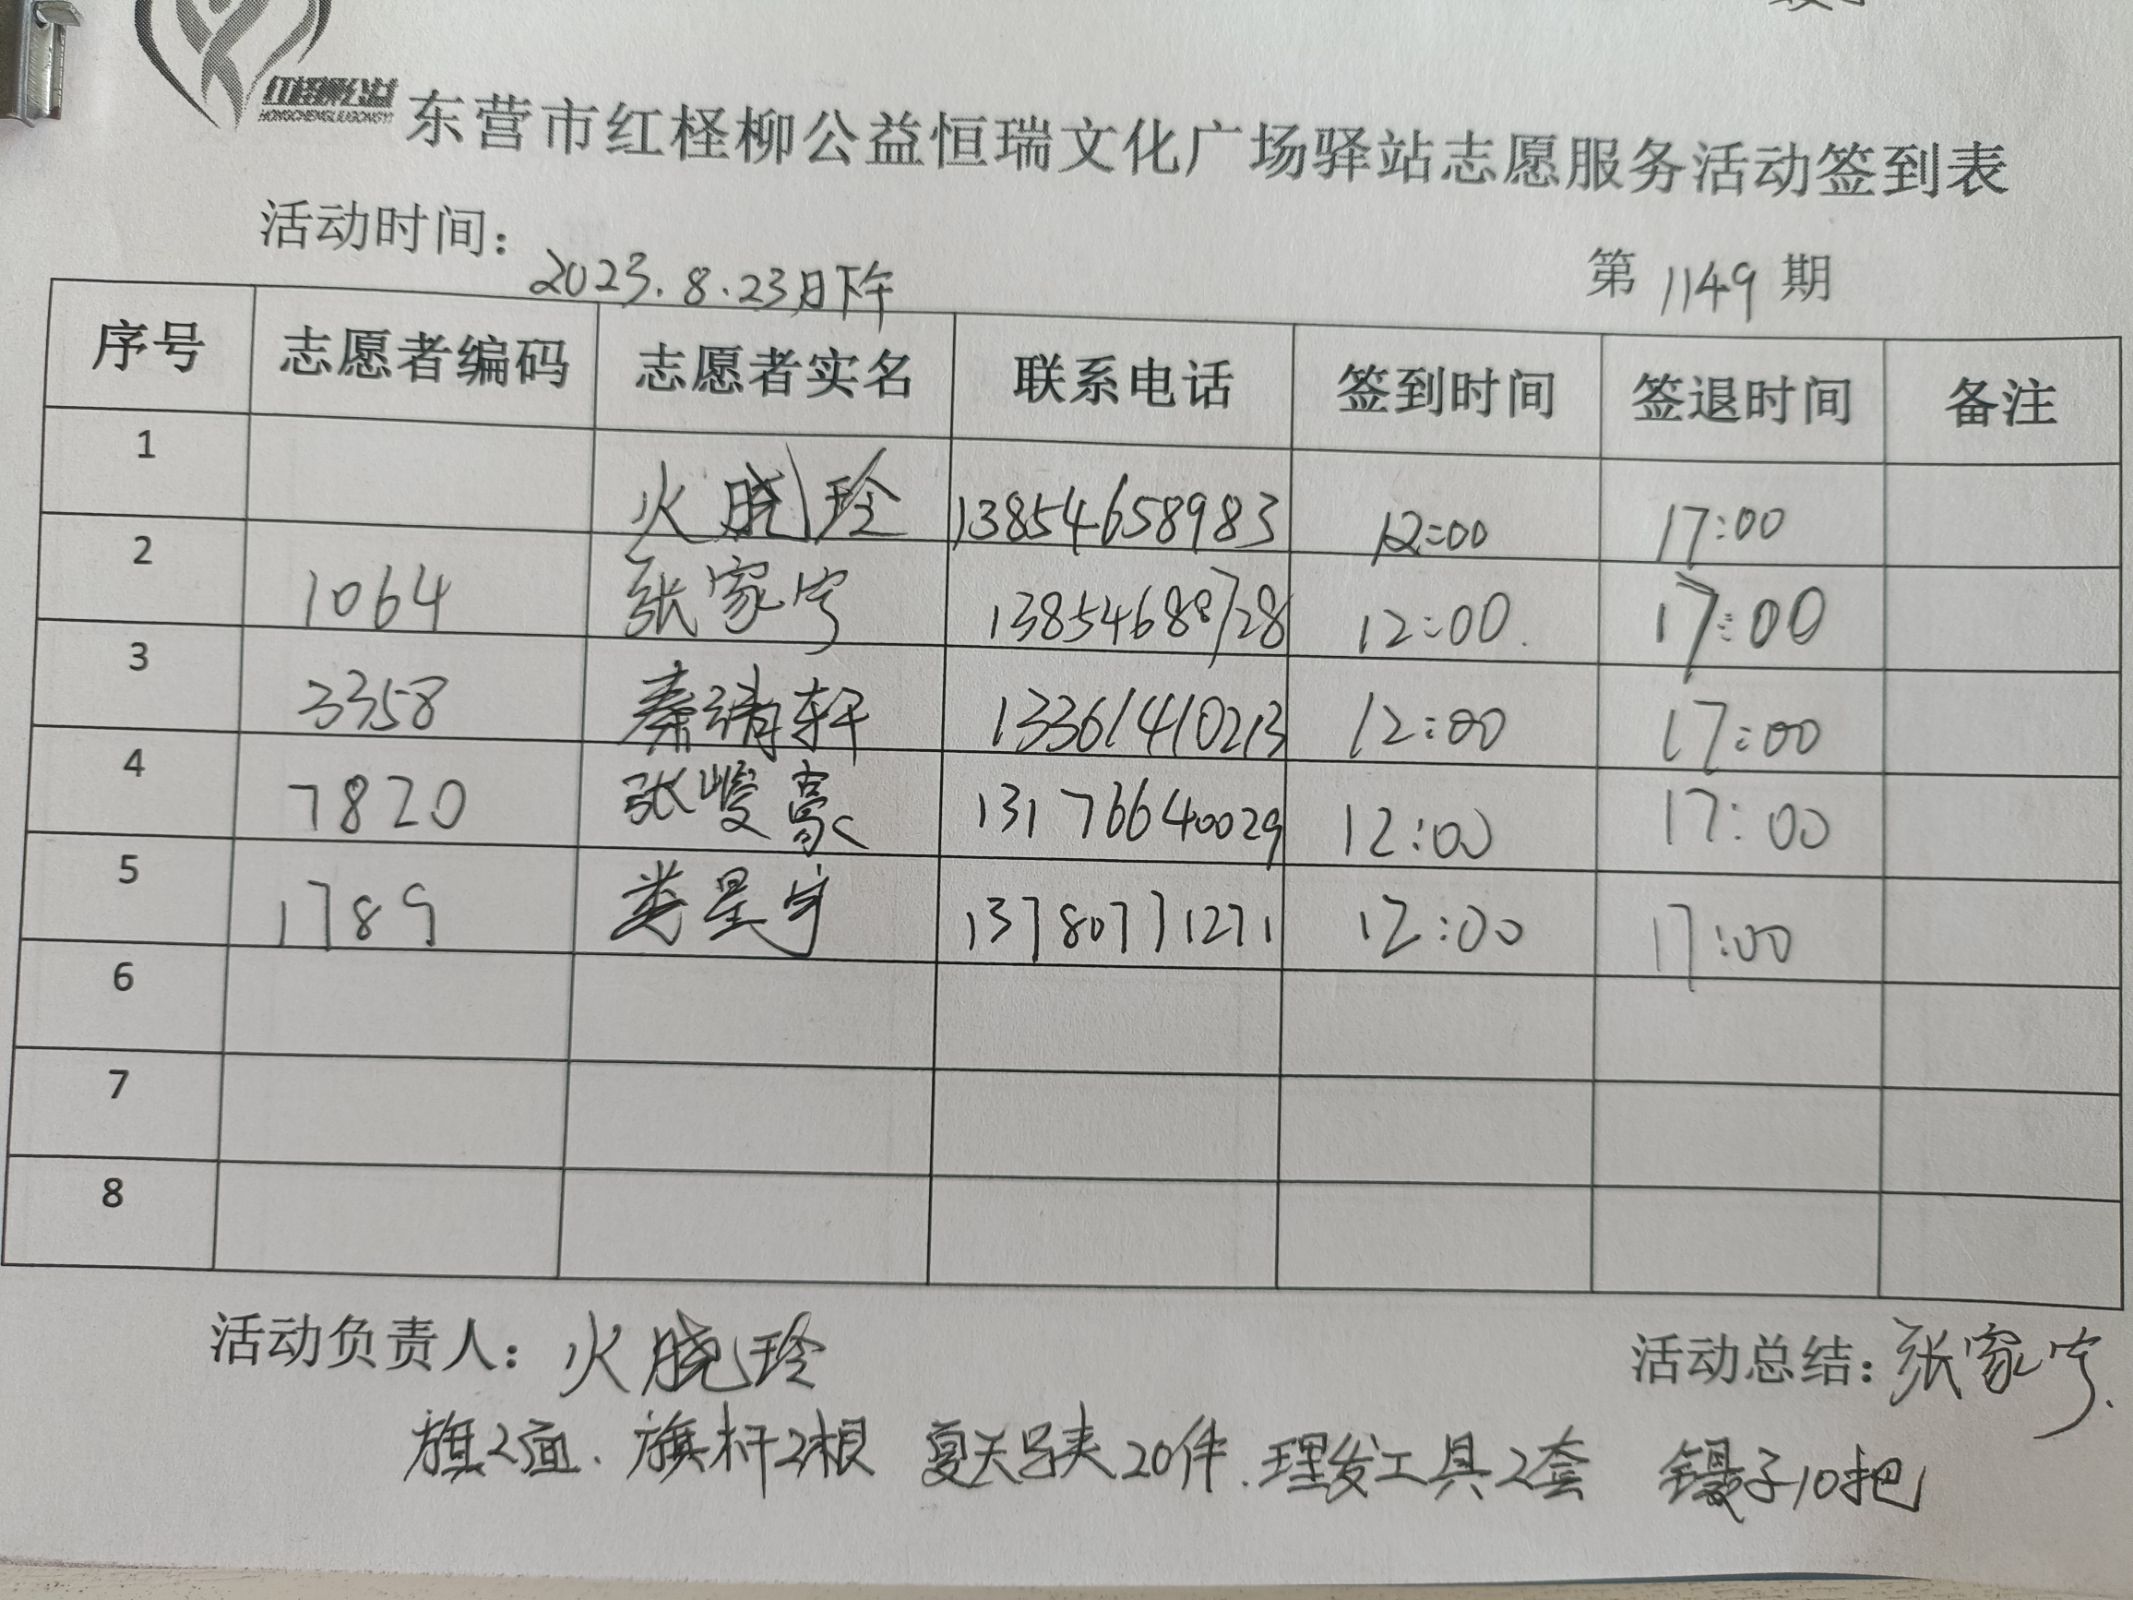 红柽柳公益
HONGCHENGLIUGONGYI
东营市红柽柳公益恒瑞文化广场驿站志愿服务活动签到表
活动时间：2023.8.23日下午 第1149期
序号 志愿者编码 志愿者实名 联系电话 签到时间 签退时间 备注
1 火晓玲 13854658983 12:00 17:00
2 1064 张家宁 13854688728 12:00 17:00
3 3358 秦靖轩 13361410213 12:00 17:00
4 7820 张峻豪 13176640029 12:00 17:00
5 1789 类星宇 13780771271 12:00 17:00
6
7
8
活动负责人：火晓玲 活动总结：张家宁.
旗2面、旗杆2根 夏天马夹20件.理发工具2套 镊子10把